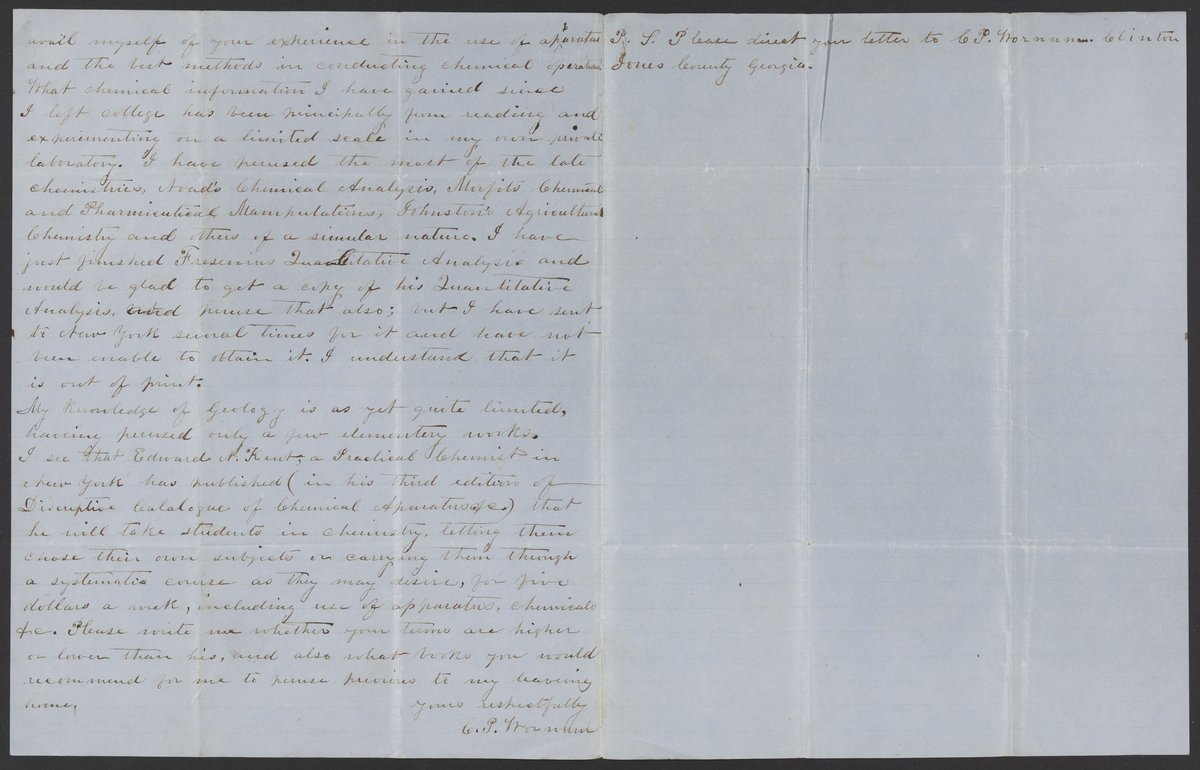 avail myself of your experience in the use of aparatus
and the best methods in conducting chemical operation
What chemical information I have gained since
I left college has been principally from reading and
experimenting on a limited scale in my own private
laboratory. I have perused the most of the late
chemistries, Noad's Chemical Analysis, Morfits Chemical
and Pharmicutical Manipulations, Johnston's Agricultural
Chemistry and others of a simular nature. I have
just finished Fresenius Qualitative Analysis and
would be glad to get a copy of his Quantitative
Analysis, and peruse that also; but I have sent
to New York serval times for it and have not
been enable to obtain it. I understand that it
is out of print.
My knowledge of Geology is as yet quite limited,
having perused only a few elementery works.
I see that Edward N. Kent, a Practical Chemist in
New York has published (in his third edition of
Discriptive Catalogue of Chemical Aparatus &c.) that
he will take students in chemistry, letting them
chose their own subjects or carrying them through
a systematic course as they may desire, for five
dollars a week, including use of apparatus, chemicals
&c. Please write me whether your terms are higher
or lower than his, and also what books you would
recommend for me to peruse previous to my leaveing
home.
yours respectfully
C. P. Wornum
P. S. Please direct your letter to C P. Wornum. Clinton
Jones County Georgia.